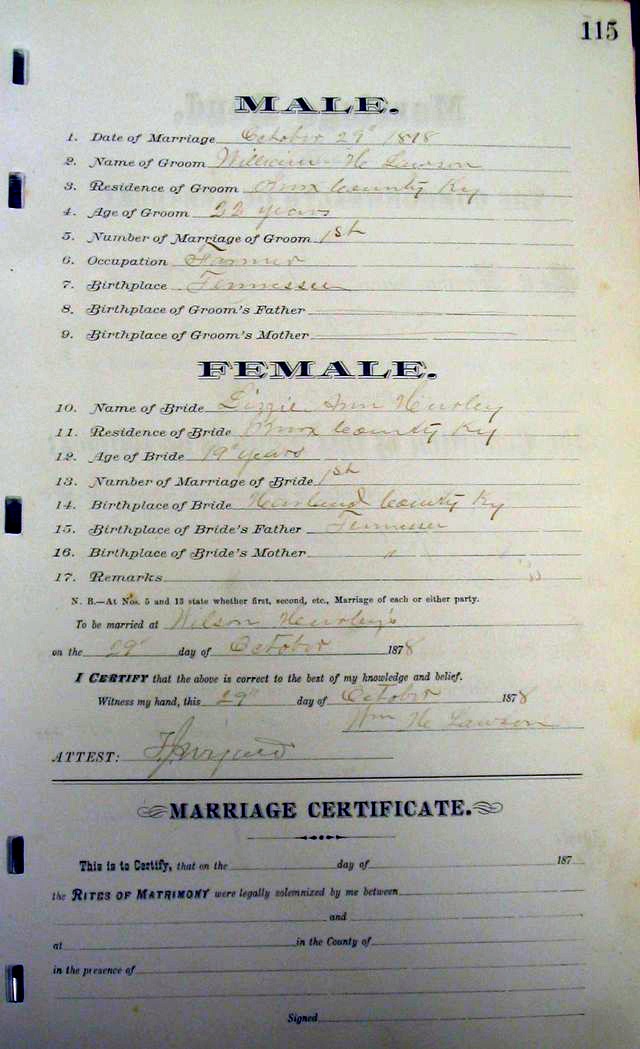 115
MALE.
1. Date of Marriage October 29" 1878
2. Name of Groom William H Lawson
3. Residence of Groom Knox County Ky
4. Age of Groom 22 years
5. Number of Marriage of Groom 1st
6. Occupation Farmer
7. Birthplace Tennessee
8. Birthplace of Groom's Father
9. Birthplace of Groom's Mother
FEMALE.
10. Name of Bride Lizzie Ann
11. Residence of Bride Knox County Ky
12. Age of Bride 19" years
13. Number of Marriage of Bride 1st
14. Birthplace of Bride Harland County Ky
15. Birthplace of Bride's Father Tennessee
16. Birthplace of Bride's Mother "
17. Remarks
N. B.—At Nos. 5 and 13 state whether first, second, etc., Marriage of each or either party.
To be married at Wilson
on the 29" day of October 1878
I CERTIFY that the above is correct to the best of my knowledge and belief.
Witness my hand, this 29" day of October 1878
Wm H Lawson
ATTEST:
MARRIAGE CERTIFICATE.
This is to Certify, that on the day of 187
the RITES OF MATRIMONY were legally solemnized by me between
and
at in the County of
in the presence of
Signed